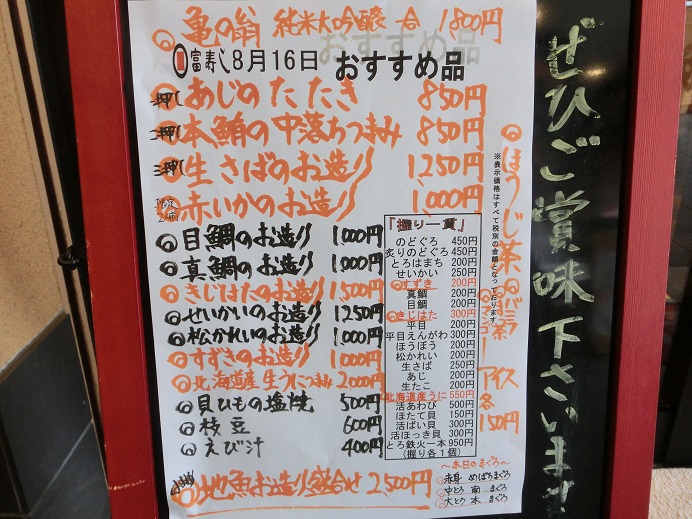 亀の翁 純米大吟醸 一合 1800円
富寿し8月16日 おすすめ品
一押し あじのたたき 850円
二押し 本鮪の中落ちつまみ 850円
三押し 生さばのお造り 1250円
限定 赤いかのお造り 1,000円
目鯛のお造り 1,000円
真鯛のお造り 1,000円
きじはたのお造り 1,500円
せいかいのお造り 1250円
松かれいのお造り 1,000円
すずきのお造り 1,000円
北海道産 生うにつまみ 2000円
貝ひもの塩焼 500円
枝豆 600円
えび汁 400円
地魚お造り盛合せ 2,500円
「握り一貫」
のどぐろ 450円
炙りのどぐろ 450円
とろはまち 200円
せいかい 250円
すずき 200円
真鯛 200円
目鯛 200円
きじはた 300円
平目 200円
平目えんがわ 300円
ほうぼう 200円
松かれい 200円
生さば 250円
あじ 200円
生たこ 200円
北海道産うに 550円
活あわび 500円
ほたて貝 150円
活ばい貝 300円
活ほっき貝 300円
とろ鉄火一本 950円
(握り各1個)
※表示価格はすべて税別の金額となっております。
ほうじ茶
バニラ
マンゴー
アイス
各150円
〜本日のまぐろ〜
赤身 めばちまぐろ
中とろ 南まぐろ
大とろ 本まぐろ
ぜひご賞味下さいませ